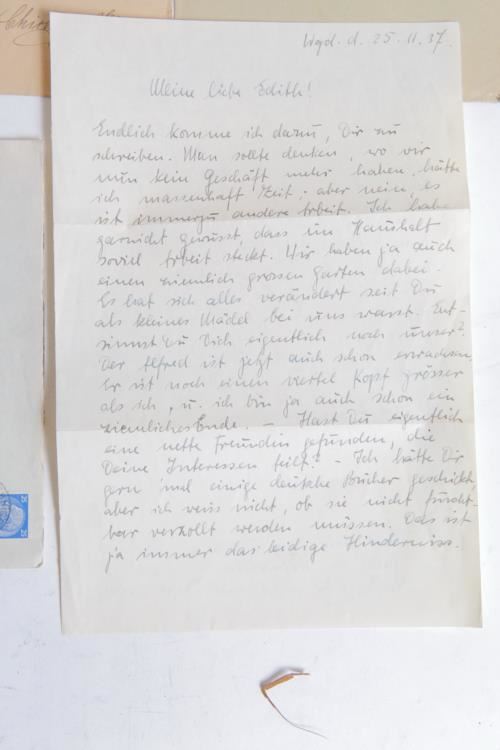 Wgd. d. 25.11.37.
Meine liebe Edith!
Endlich komme ich dazu, Dir zu
schreiben. Man sollte denken, wo wir
nun kein Geschäft mehr haben, hätte
ich massenhaft Zeit; aber nein, es
ist immerzu andere Arbeit. Ich habe
garnicht gewusst, dass im Haushalt
soviel Arbeit steckt. Wir haben ja auch
einen ziemlich grossen Garten dabei.
Es hat sich alles verändert seit Du
als kleines Mädel bei uns warst. Ent-
sinnst Du Dich eigentlich noch unser?
Der Alfred ist jetzt auch schon erwachsen,
Er ist noch einen viertel Kopf grösser
als ich, u. ich bin ja auch schon ein
ziemliches Ende. — Hast Du eigentlich
eine nette Freundin gefunden, die
Deine Interessen teilt? - Ich hätte Dir
gern 'mal einige deutsche Bücher geschickt,
aber ich weiss nicht, ob sie nicht furcht-
bar verzollt werden müssen. Das ist
ja immer das leidige Hinderniss.
25
25